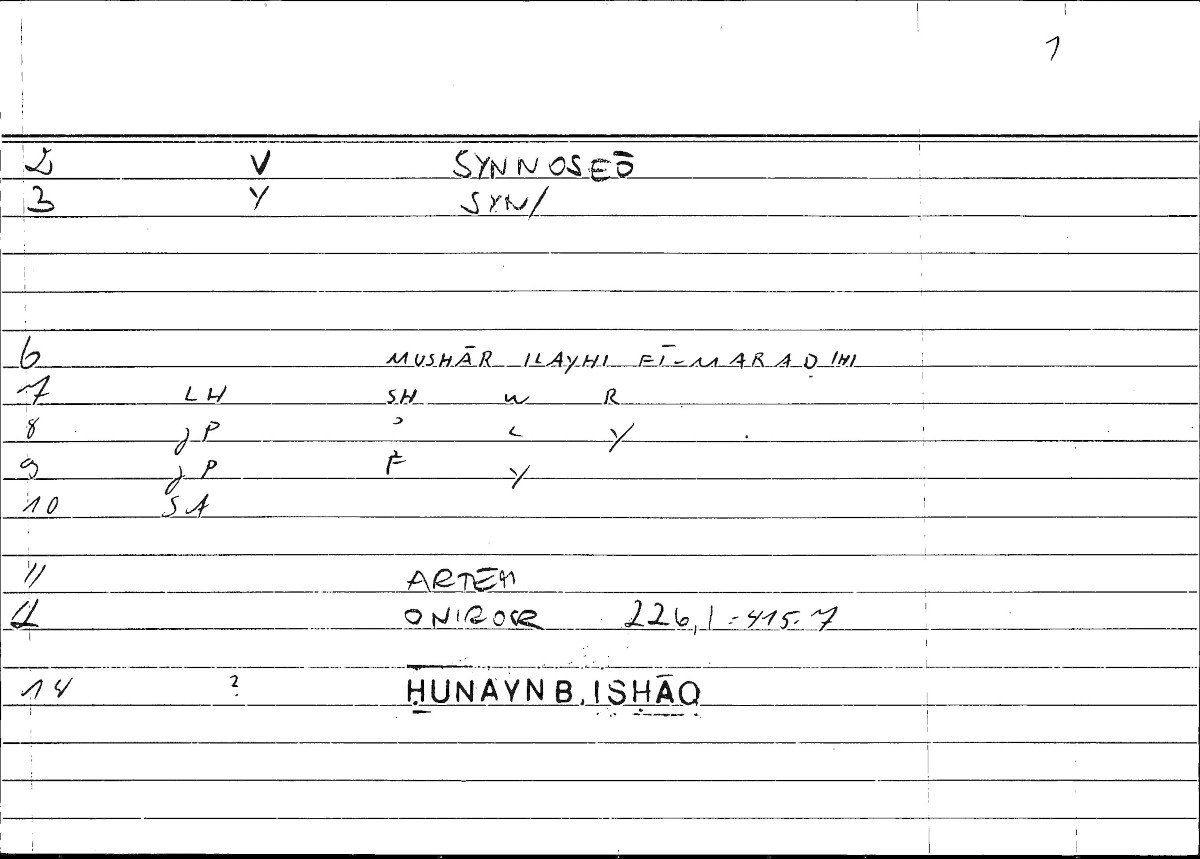 1
2 V SYNNOSEŌ
3 Y SYN/
6 MUSHĀR ILAYHI FĪ-MARAḌIHI
7 LH SH W R
8 JP ʾ ʿ Y
9 JP F Y
10 SA
11 ARTEM
12 ONIROCR 226,1-415.7
14 ? ḤUNAYN B. ISḤĀQ